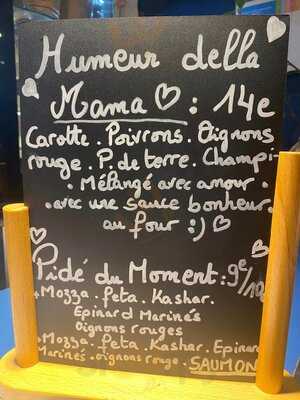 Humeur della
Mama : 14e
Carotte . Poivrons . Oignons
rouge . P. de terre . Champi-
. Mélangé avec amour .
. avec une sauce bonheur.
au four :)
Pidé du Moment : 9e/10e
* Mozza . feta . Kashar .
Epinard Marinés
Oignons rouges
* Mozza . feta . Kashar . Epinard
Marinés . oignons rouge . SAUMON